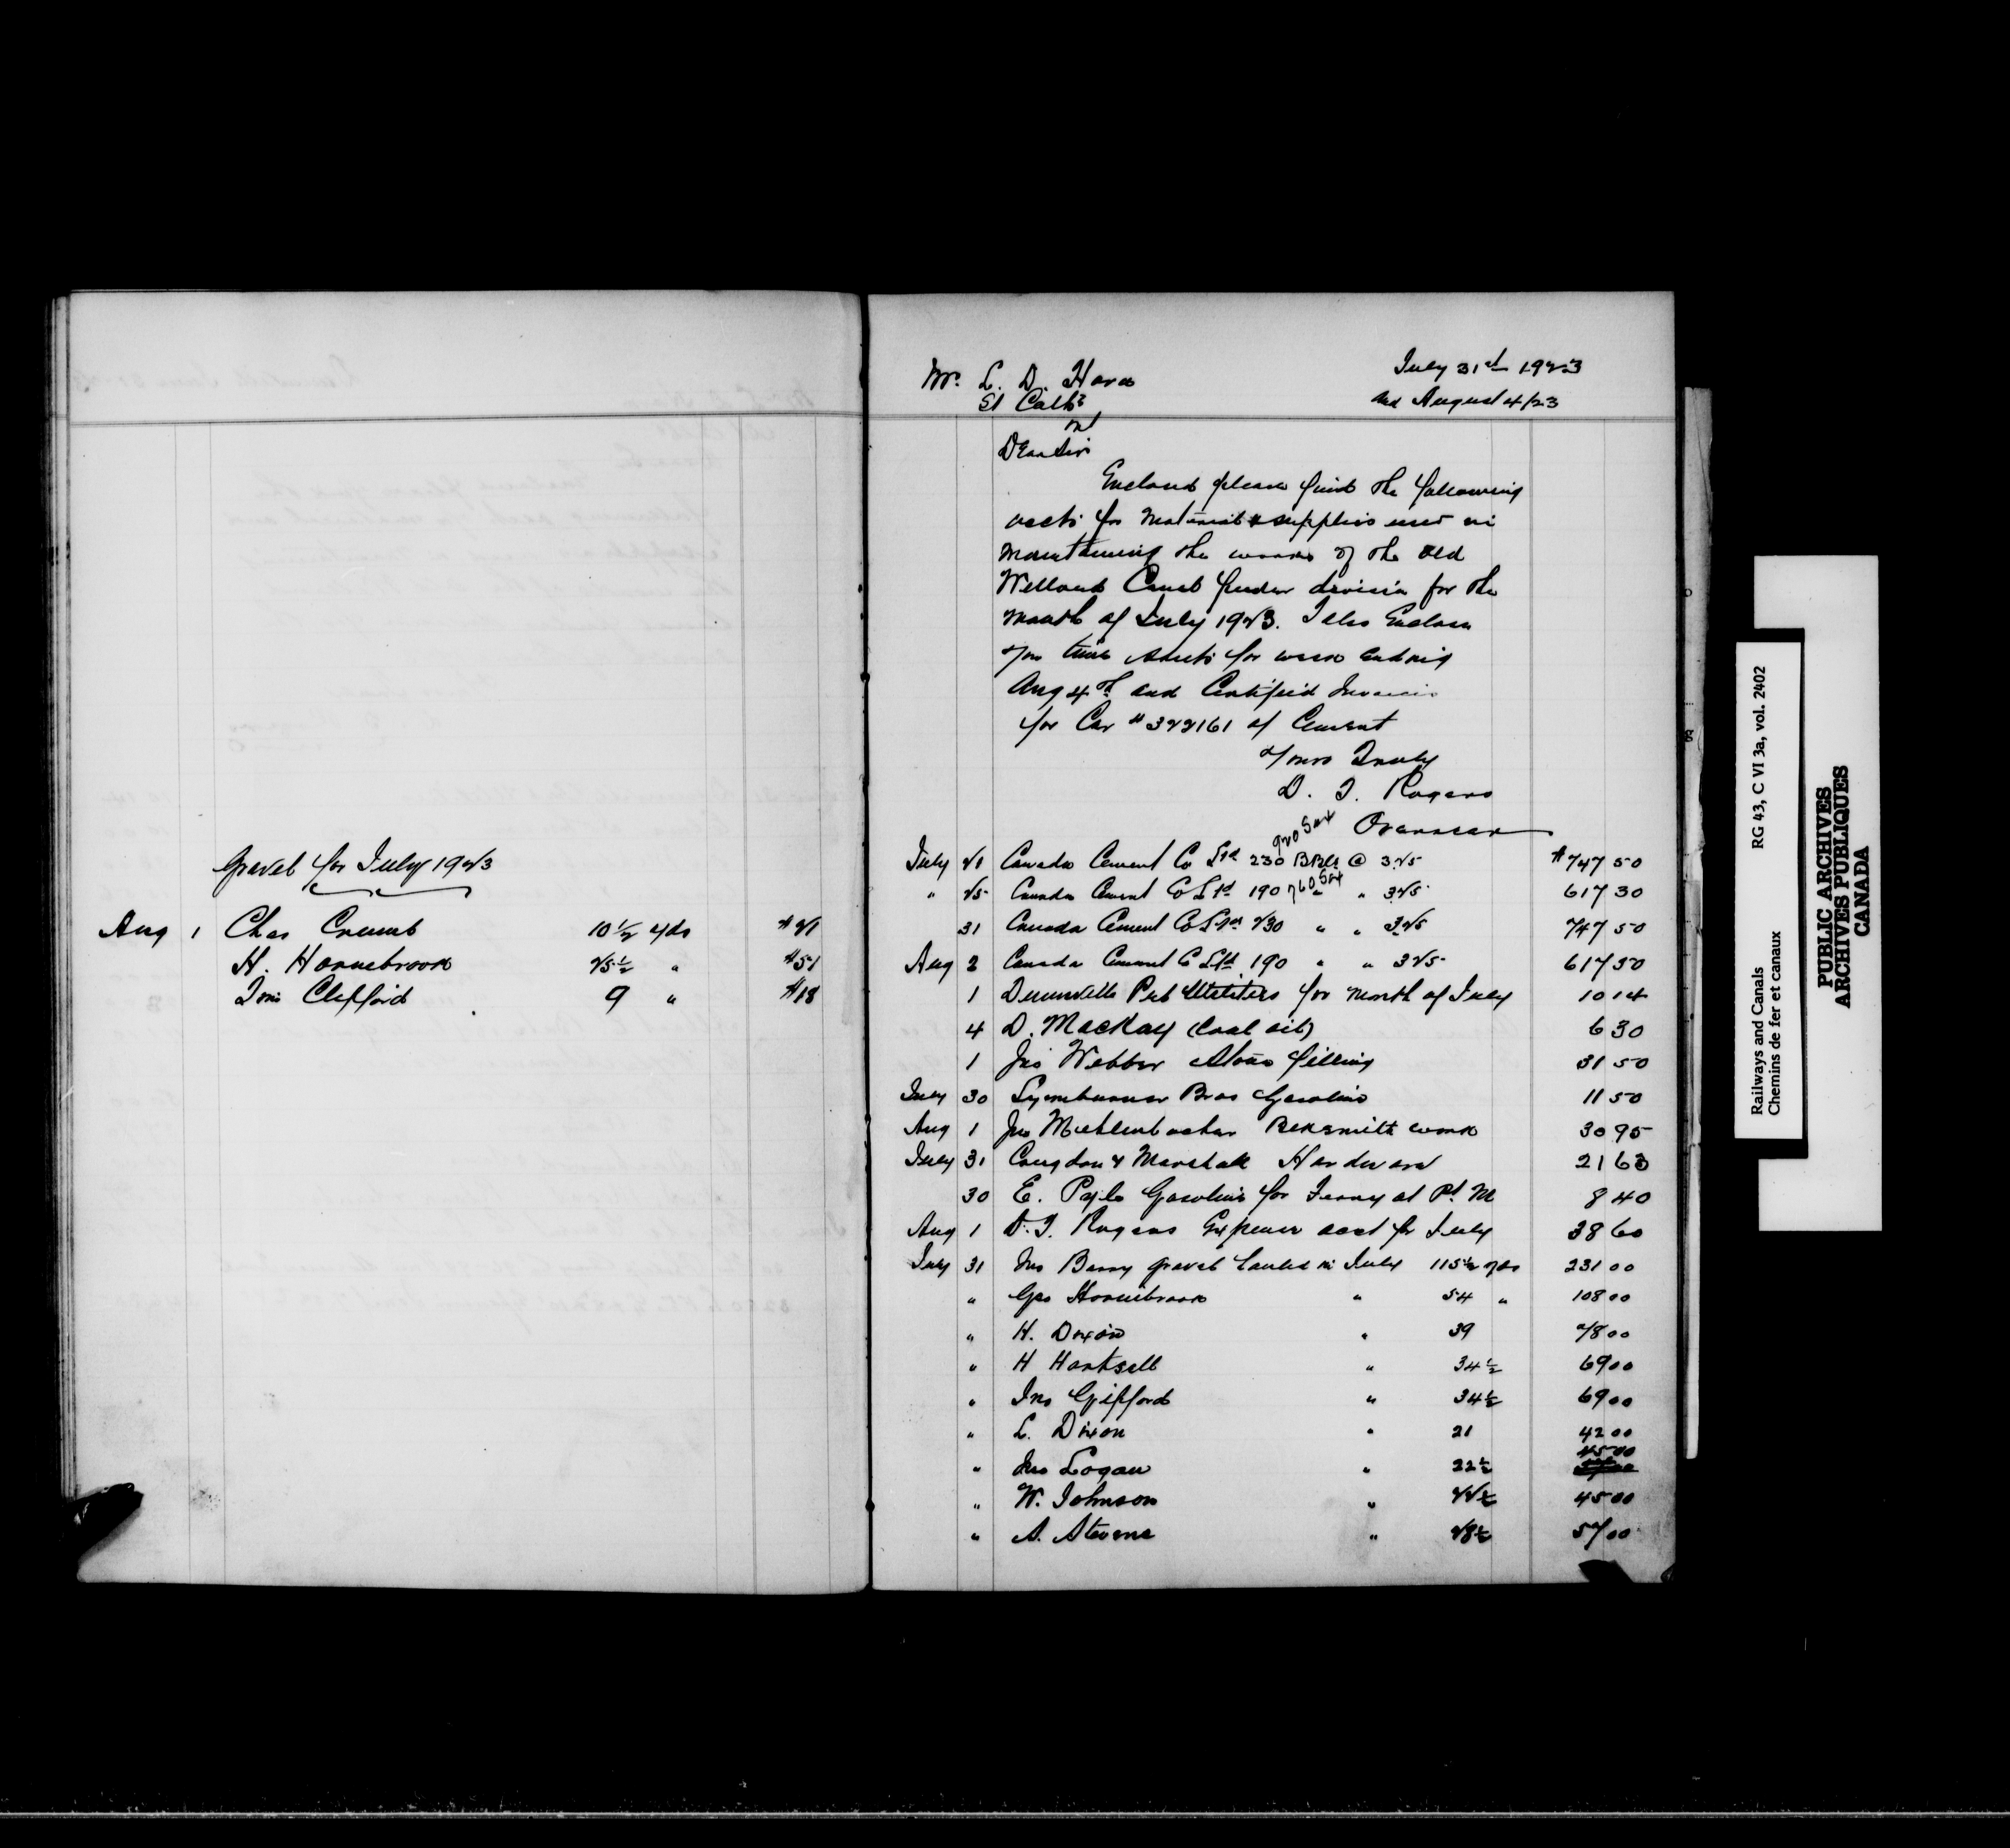 Gravel for July 1923
Aug 1 Chas Crumb 10½ yds $21
H. Hornebrook 25½ " $51
Tom Clifford 9 " $18
Mr. L. D. Hara July 31st 1923
St Caths and August 4/23
Ont
Dear Sir
Enclosed please find the following
accts for material & supplies used in
maintaining the works of the Old
Welland Canal feeder division for the
month of July 1923. I also Enclose
you time sheets for week Ending
Aug 4th and Certified Invoice
for Car #322161 of Cement
Yours Truly
D. T. Rogers
Overseer
920 Sax
July 21 Canada Cement Co Ltd 230 BBls @ 3.25 $747 50
" 25 Canada Cement Co Ltd 190 760 Sax " " 3.25 617 30
31 Canada Cement Co Ltd 230 " " 3.25 747 50
Aug 2 Canada Cement Co Ltd 190 " " 3.25 617 30
1 Dunnville Pub Utilities for month of July 10 14
4 D. MacKay (Coal oil) 6 30
1 Jno Webber Stone filling 31 50
July 30 Lymburner Bros Gasoline 11 50
Aug 1 Jno Muhlenbacher Blksmith work 30 95
July 31 Congdon & Marshall Hardware 21 63
30 E. Pyle Gasoline for Ferry at Pt. M 8 40
Aug 1 D. T. Rogers Expense acct for July 38 60
July 31 Jno Barry gravel hauled in July 115½ yds 231 00
" Geo Hornibrook " 54 " 108 00
" H. Dixon " 39 78 00
" H Hartsell " 34½ 69 00
" Jno Gifford " 34½ 69 00
" L. Dixon " 21 42 00
" Jno Logan " 22½ 45 00
" W. Johnson " 22½ 45 00
" A. Stevens " 28½ 57 00
Railways and Canals RG 43, C VI 3a, vol. 2402
Chemins de fer et canaux
PUBLIC ARCHIVES
ARCHIVES PUBLIQUES
CANADA